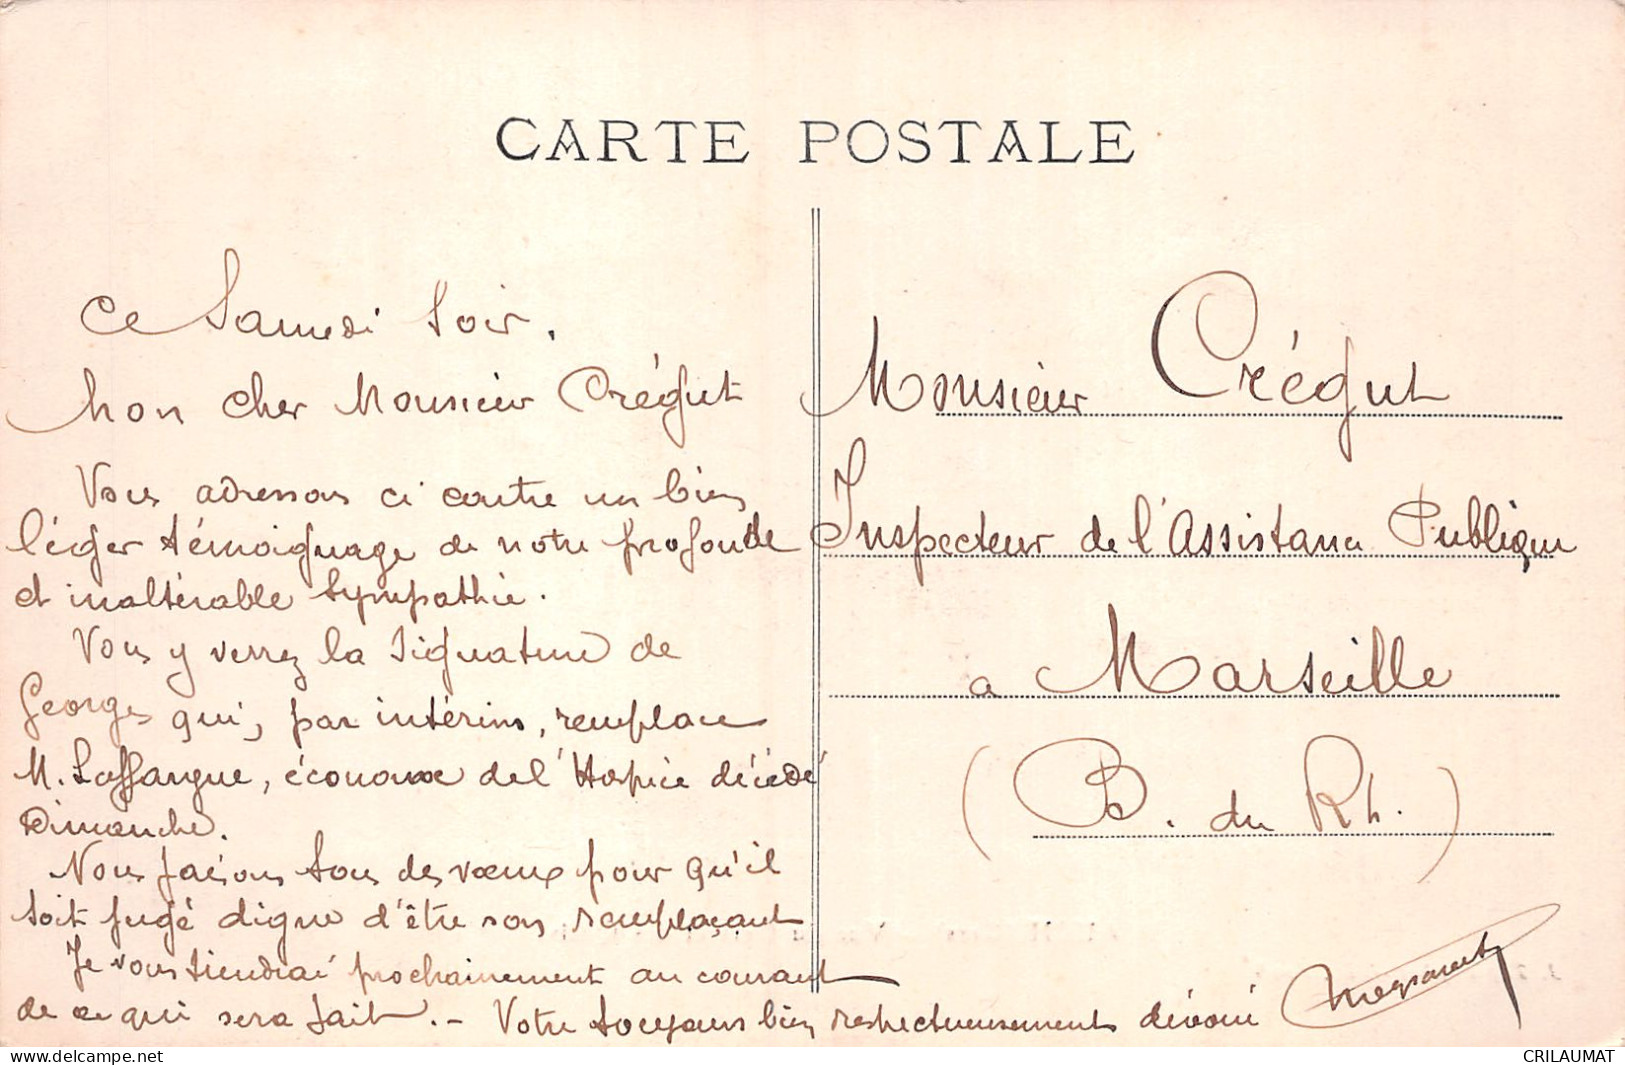 CARTE POSTALE
Ce Samedi soir.
Mon cher Monsieur Crégut
Vous adressons ci contre un bien
léger témoignage de notre profonde
et inaltérable sympathie.
Vous y verrez la signature de
Georges qui, par intérim, remplace
M. Laffargue, économe de l'Hospice décédé
Dimanche.
Nous faisons tous des vœux pour qu'il
soit jugé digne d'être son remplaçant
Je vous tiendrai prochainement au courant
de ce qui sera fait. - Votre toujours bien respectueusement dévoué
Monsieur Crégut
Inspecteur de l'Assistance Publique
a Marseille
(B. du Rh.)
delcampe.net
CRILAUMAT